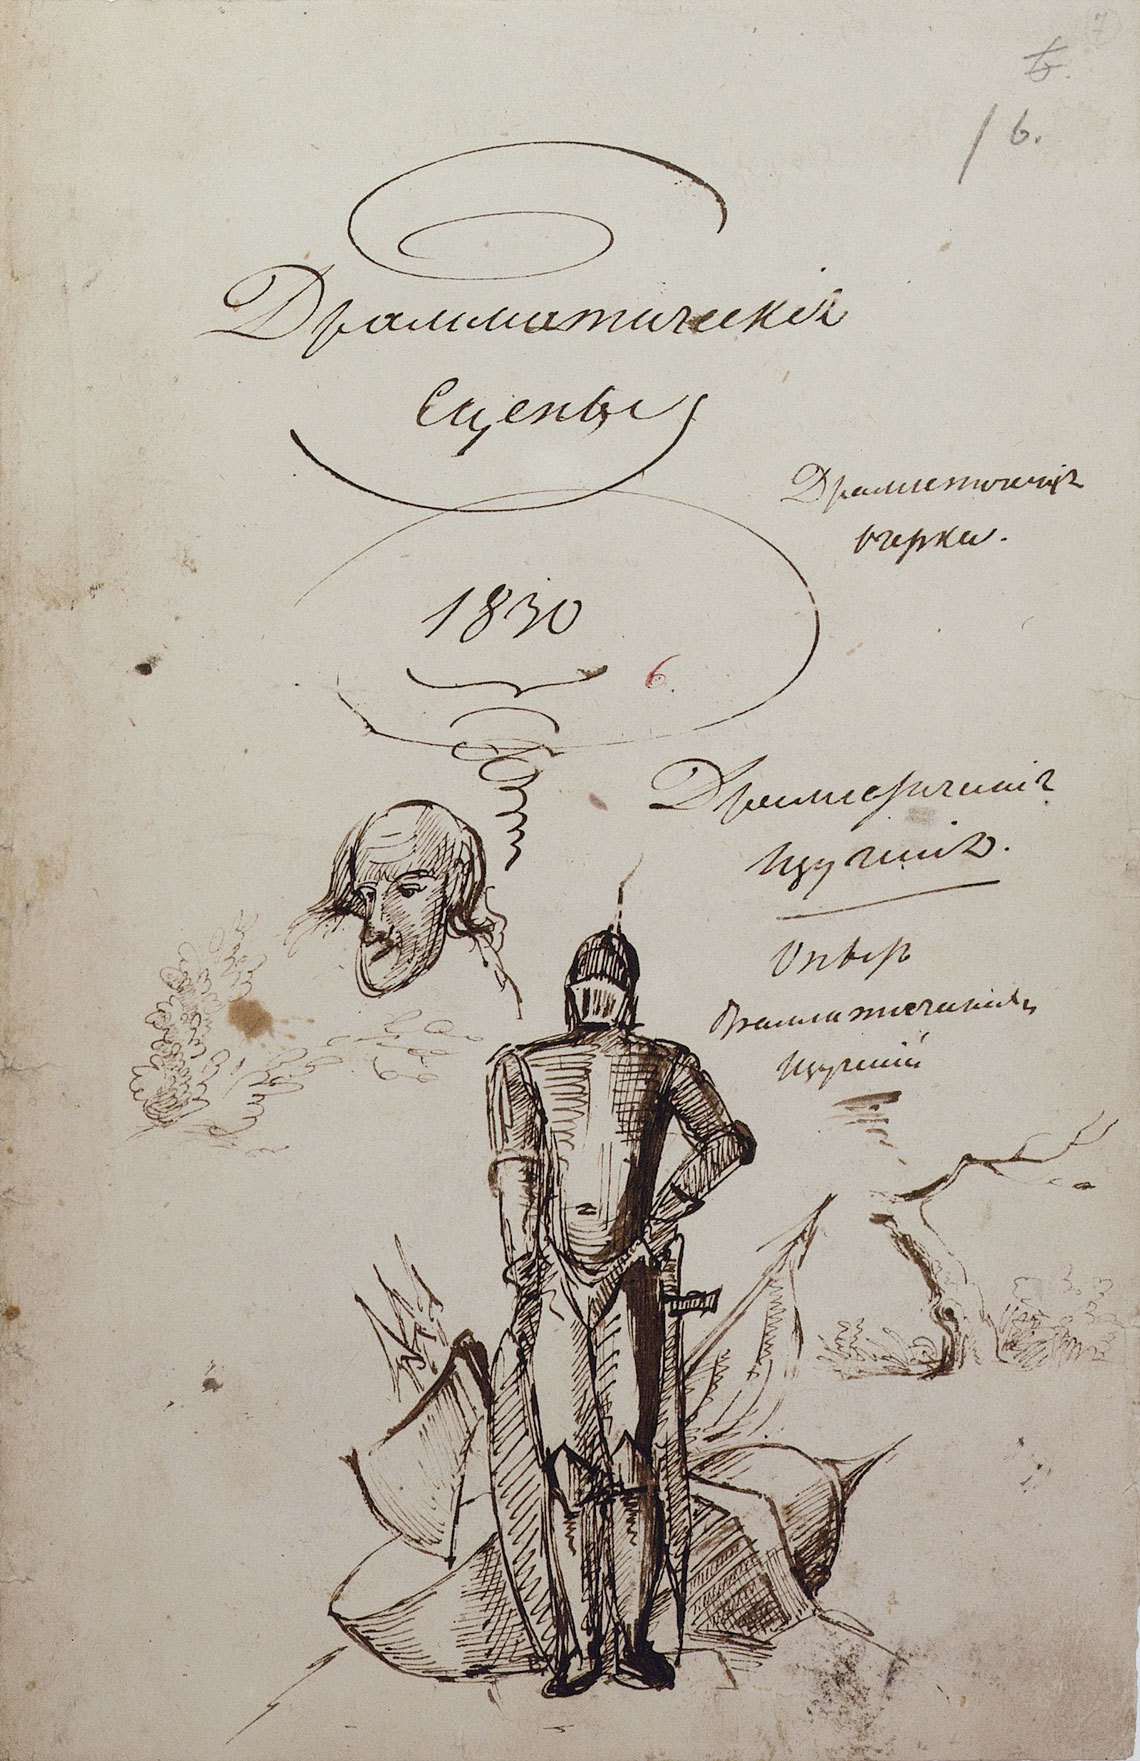 7
6.
/ 6.
Драмматическія
Сцены
Драматическіе
очерки.
1830
6.
Драматическія
Изученія.
Опытъ
драматическихъ
Изученій